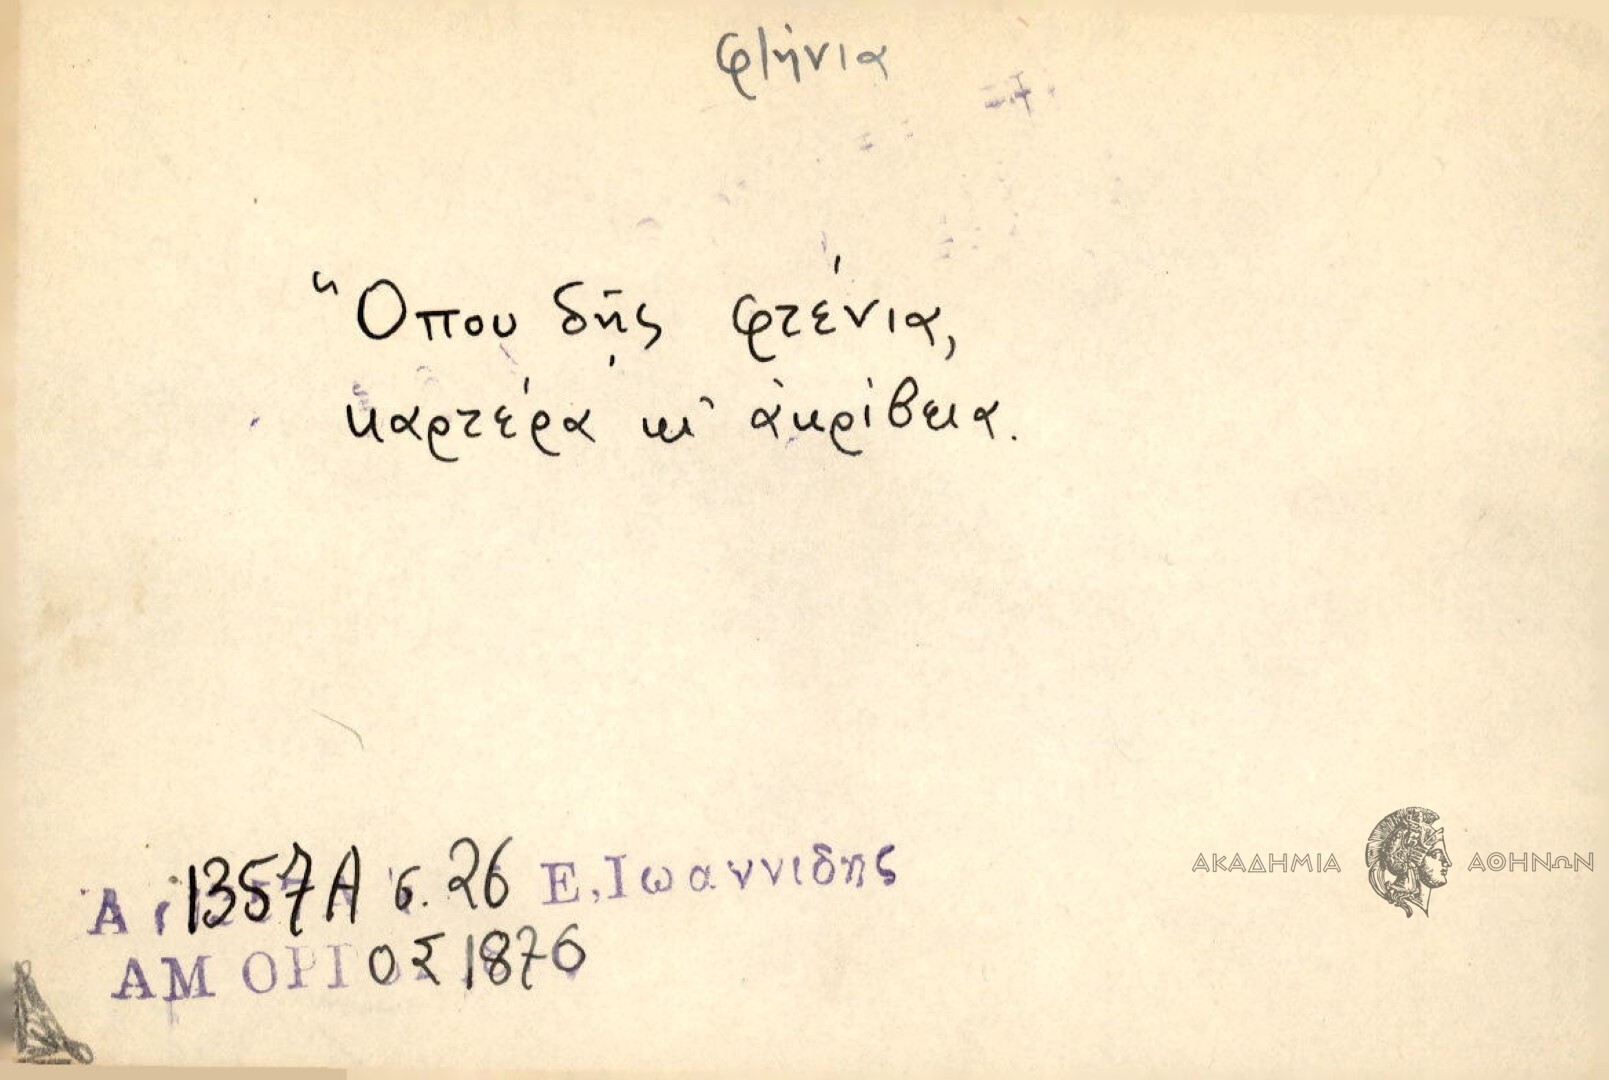 φτήνια
Ὅπου δῇς φτένια,
καρτέρα κι' ἀκρίβεια.
Α. 1357Α σ. 26 Ε. Ιωαννιδης
ΑΜΟΡΓΟΣ 1876
ΑΚΑΔΗΜΙΑ ΑΘΗΝΩΝ